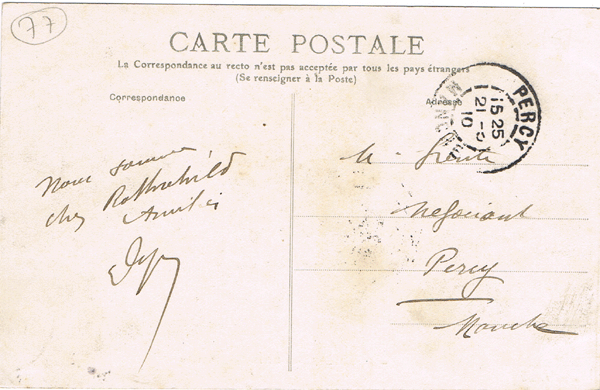 77
CARTE POSTALE
La Correspondance au recto n'est pas acceptée par tous les pays étrangers
(Se renseigner à la Poste)
Correspondance
Adresse
PERCY
15 25
21 -
10
Nous sommes
chez Rothschild
Amitiés
Mr
Négociant
Percy
Manche